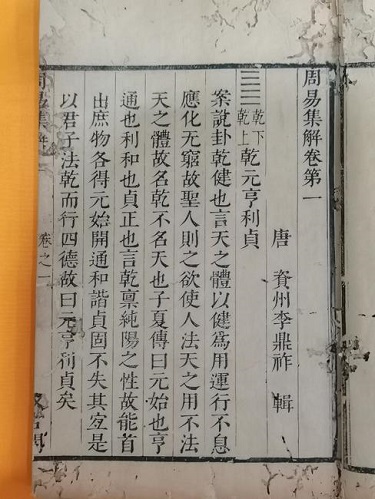 周易集解卷第一
唐 資州李鼎祚 輯
乾下乾上 乾元亨利貞
案說卦乾健也言天之體以健爲用運行不息
應化无窮故聖人則之欲使人法天之用不法
天之體故名乾不名天也子夏傳曰元始也亨
通也利和也貞正也言乾稟純陽之性故能首
出庶物各得元始開通和諧貞固不失其宜是
以君子法乾而行四德故曰元亨利貞矣
周易集解 卷之一